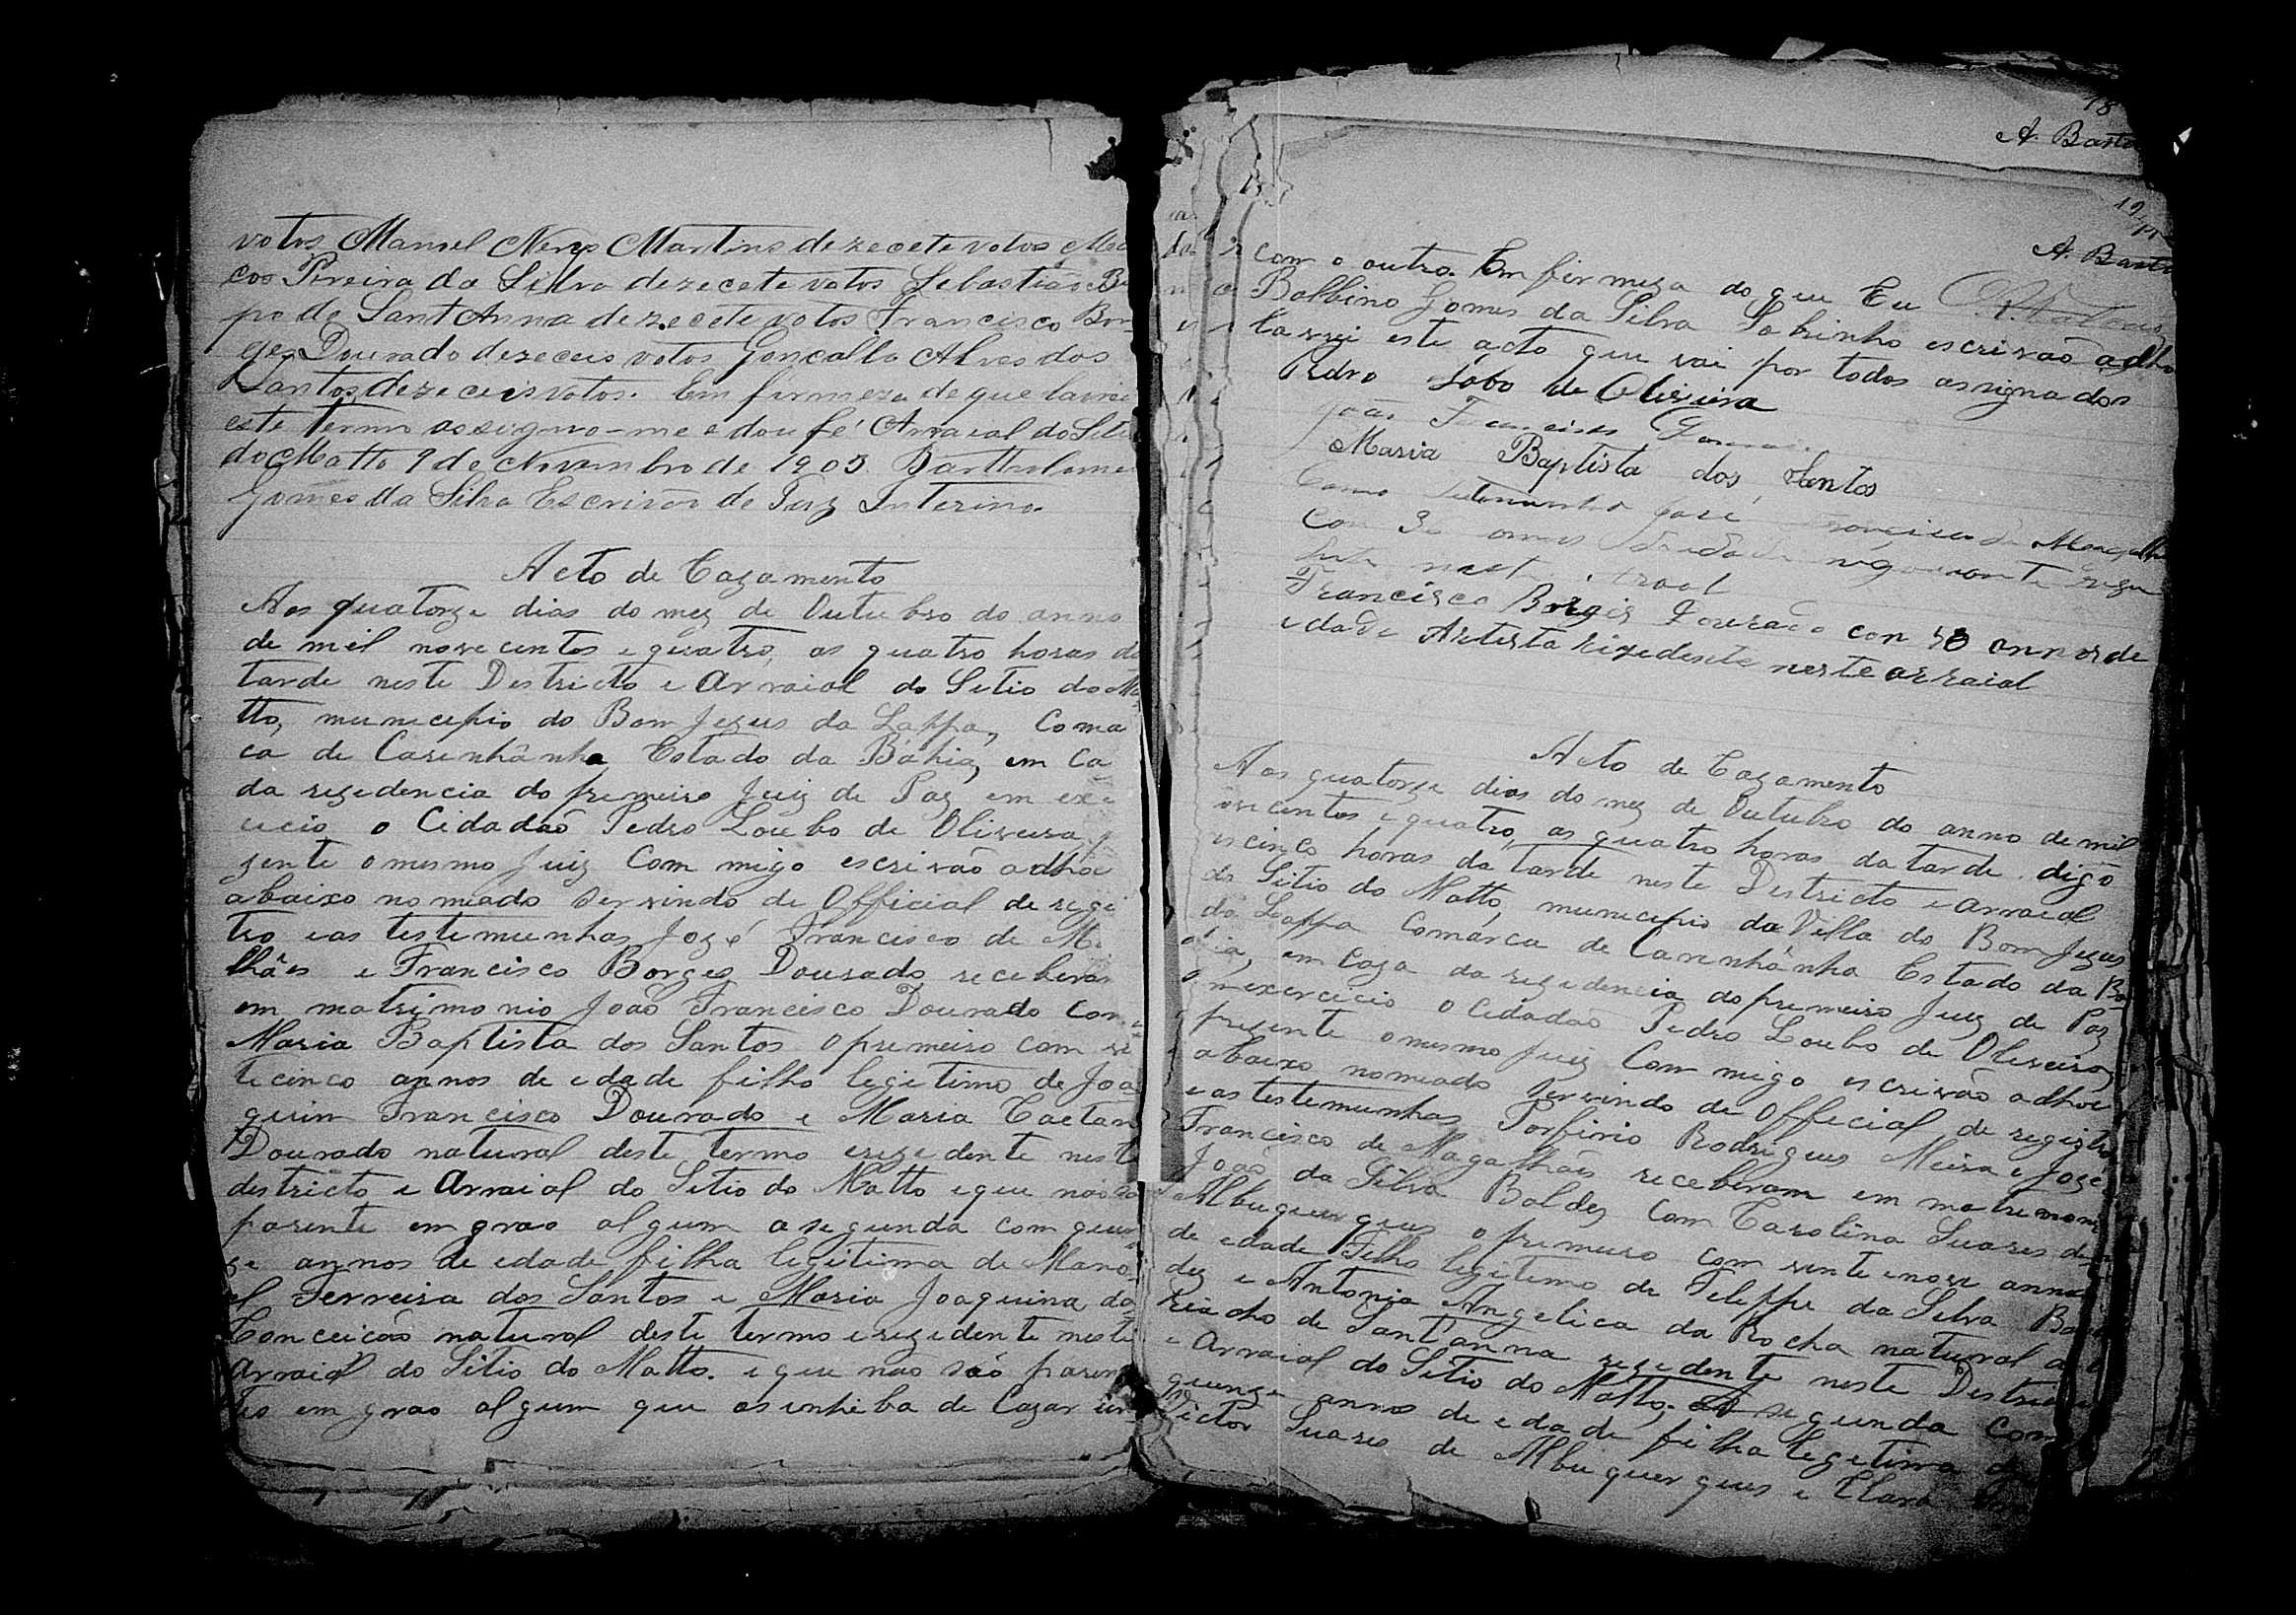 votos Manoel Nery Martins dezecete votos
cos Pereira da Silva dezecete votos Sebastião
po de Sant Anna dezecete votos Francisco Bor
ges Dourado dezeceis votos Goncallo Alves dos
Santos dezeceis votos. Em firmeza de que lavrei
este termo assigno-me e dou fé Arraial do Sitio
do Matto 9 de Novembro de 1903 Bartholomeu
Gomes da Silva Escrivão de Paz Interino.
Acto de Cazamento
Aos quatorze dias do mez de Outubro do anno
de mil novecentos e quatro, as quatro horas da
tarde neste Destricto e Arraial do Sitio do Ma
tto, municipio do Bom Jezus da Lappa, Coma
ca de Carinhânha Estado da Bahia, em Ca
da rezedencia do premeiro Juiz de Paz em exe
cicio o Cidadão Pedro Loubo de Oliveira, p
zente o mesmo Juiz Com migo escrivão adhoc
abaixo nomeado servindo de Official de regi
tro e as testemunhas Jozé Francisco de Ma
lhães e Francisco Borges Dourado receberão
em matrimonio João Francisco Dourado com
Maria Baptista dos Santos o premeiro com vi
te cinco annos de edade filho legitimo de Joa
quim Francisco Dourado e Maria Caetan
Dourado natural deste termo e rezedente neste
destricto e Arraial do Sitio do Matto e que não são
parente em grao algum a segunda com quin
ze annos de edade filha legitima de Mano
el Ferreira dos Santos e Maria Joaquina da
Conceicão natural deste termo e rezedente neste
Arraial do Sitio do Matto. e que não são paren
tes em grao algum que os enhiba de Cazar um
18
A. Basto
19
A. Basto
com o outro. Em firmeza do que Eu
Balbino Gomes da Silva Sobrinho escrivão adhoc
lavrei este acto que vai por todos assignados
Pedro Lobo de Oliveira
João Francisco
Maria Baptista dos Santos
Como Testemunha José Francisco de Magalhães
Com 30 annos de edade negociante rezi
dente neste arraal
Francisco Borges Dourado con 48 annos de
edade Artista rizedente neste arraial
Acto de Cazamento
Aos quatorze dias do mez de Outubro do anno de mil
ovecentos e quatro, as quatro horas da tarde. digo
as cinco horas da tarde neste Destricto e arraial
do Sitio do Matto, municipio da Villa do Bom Jezus
da Lappa Comarca de Carinhânha Estado da Ba
hia, em Caza da rezedencia do premeiro Juiz de Paz
em exercicio o Cidadão Pedro Loubo de Oliveira,
prezente o mesmo Juiz Com migo escrivão adhoc
abaixo nomeado servindo de Official de registro
e as testemunhas Porfirio Rodrigues Meira e Joze
Francisco de Magalhães receberam em matremoni
João da Silva Baldez Com Carolina Suares de
Albuquerques o premeiro com vente e nove annos
de edade Filho legitimo de Feleppe da Silva Bal
dez e Antonia Angelica da Rocha natural do
Riacho de Sant'anna rezedente neste Destricto
e Arraial do Sitio do Matto, a segunda Com
quinze annos de edade filha legitima de
Victor Suares de Albuquerques e Clara